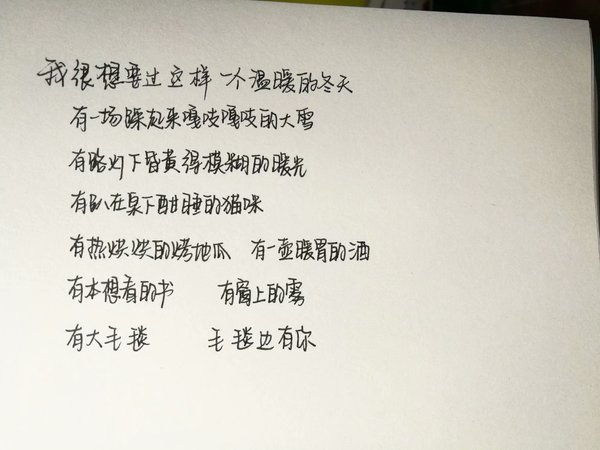 我很想要过这样一个温暖的冬天
有一场踩起来嘎吱嘎吱的大雪
有路灯下昏黄得模糊的暖光
有趴在桌下酣睡的猫咪
有热烘烘的烤地瓜 有一壶暖胃的酒
有本想看的书 有窗上的雾
有大毛毯 毛毯边有你